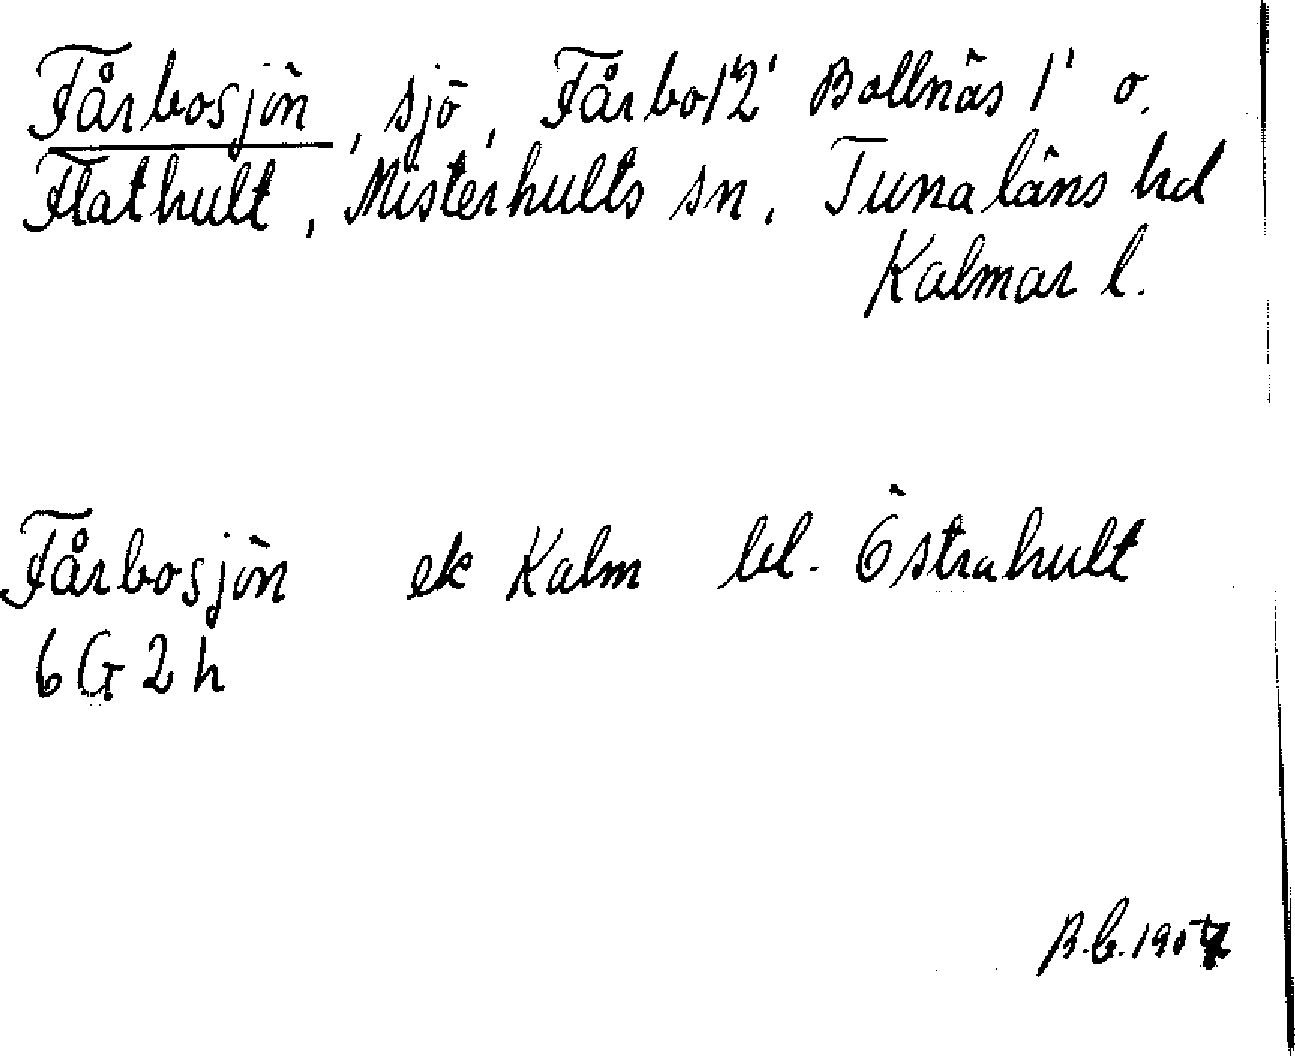 Fårbosjön, sjö, Fårbo 1'2' Bollnäs 1' o.
Flathult, Misterhults sn, Tunaläns hd
Kalmar l.
Fårbosjön ek Kalm bl. Östrahult
6G2h